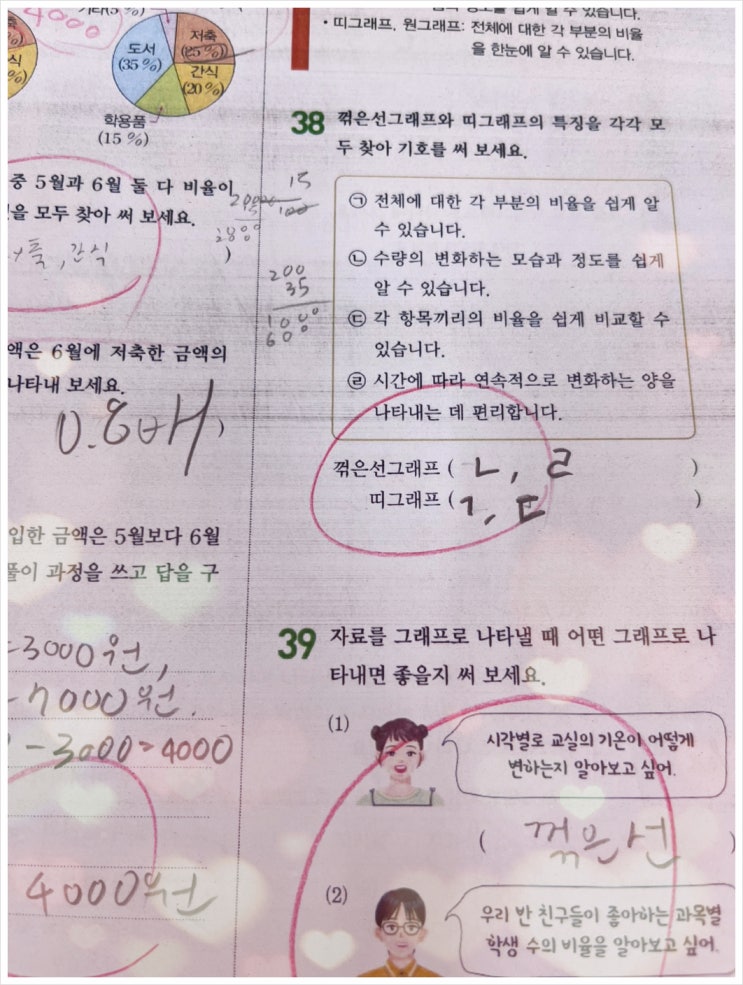 4000
기타(5 %)
도서
(35 %)
저축
(25 %)
간식
(20 %)
학용품
(15 %)
중 5월과 6월 둘 다 비율이
을 모두 찾아 써 보세요.
, 간식
)
15
100
200
35
액은 6월에 저축한 금액의
나타내 보세요.
0.8배 )
입한 금액은 5월보다 6월
풀이 과정을 쓰고 답을 구
3000원,
7000원.
- 3000 = 4000
4000원
• 띠그래프, 원그래프: 전체에 대한 각 부분의 비율
을 한눈에 알 수 있습니다.
38 꺾은선그래프와 띠그래프의 특징을 각각 모
두 찾아 기호를 써 보세요.
㉠ 전체에 대한 각 부분의 비율을 쉽게 알
수 있습니다.
㉡ 수량의 변화하는 모습과 정도를 쉽게
알 수 있습니다.
㉢ 각 항목끼리의 비율을 쉽게 비교할 수
있습니다.
㉣ 시간에 따라 연속적으로 변화하는 양을
나타내는 데 편리합니다.
꺾은선그래프 ( ㄴ, ㄹ )
띠그래프 ( ㄱ, ㄷ )
39 자료를 그래프로 나타낼 때 어떤 그래프로 나
타내면 좋을지 써 보세요.
(1)
시각별로 교실의 기온이 어떻게
변하는지 알아보고 싶어.
( 꺾은선 )
(2)
우리 반 친구들이 좋아하는 과목별
학생 수의 비율을 알아보고 싶어.